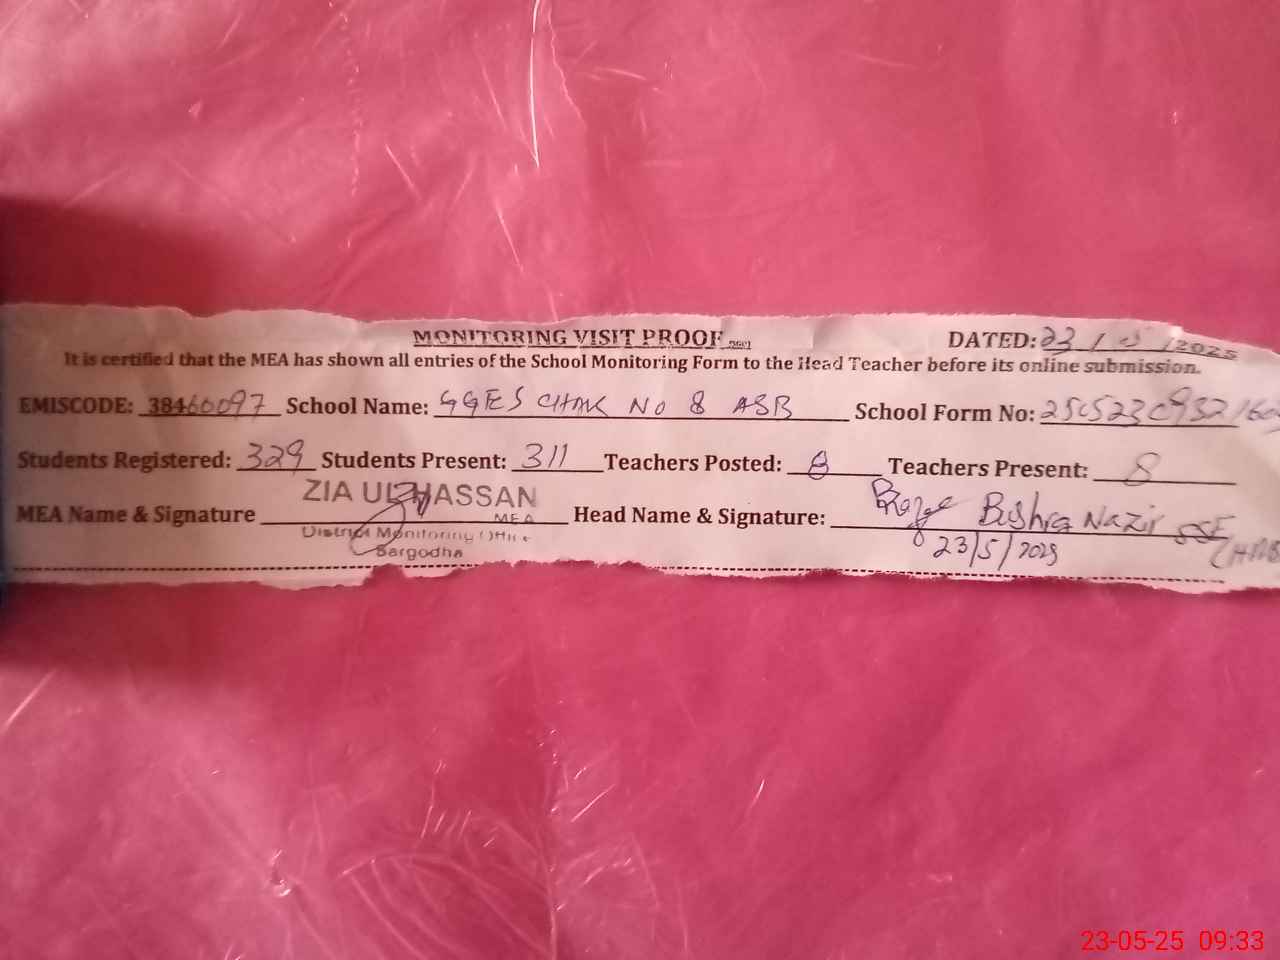 MONITORING VISIT PROOF DATED: 23 / 5 /2025
It is certified that the MEA has shown all entries of the School Monitoring Form to the Head Teacher before its online submission.
EMISCODE: 38460097 School Name: GGES CHAK No 8 ASB School Form No:
Students Registered: 329 Students Present: 311 Teachers Posted: 8 Teachers Present: 8
ZIA UL HASSAN
MEA Name & Signature MEA Head Name & Signature: Bushra Nazir SSE
District Monitoring Office
Sargodha
23/5/2025
23-05-25 09:33